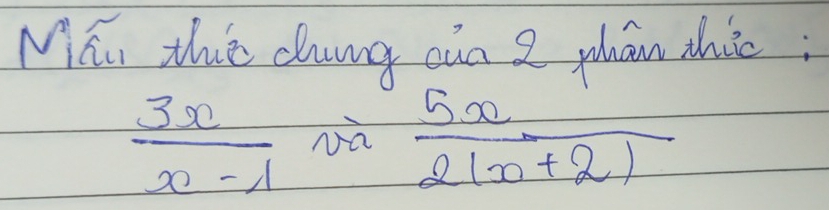 Mẫu thức chung của 2 phân thức :
3x / x - 1 và 5x / 2(x + 2)